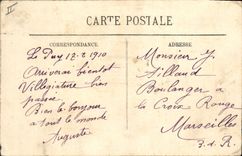 II
CARTE POSTALE
CORRESPONDANCE
Le Puy 12-2 1910
Arriverai bientot
Villegiature bien
passée
Bien le bonjour
a tout le monde
Auguste
ADRESSE
Monsieur J
Sillaud
Boulanger a
la Croix Rouge
Marseilles
B. d. R.